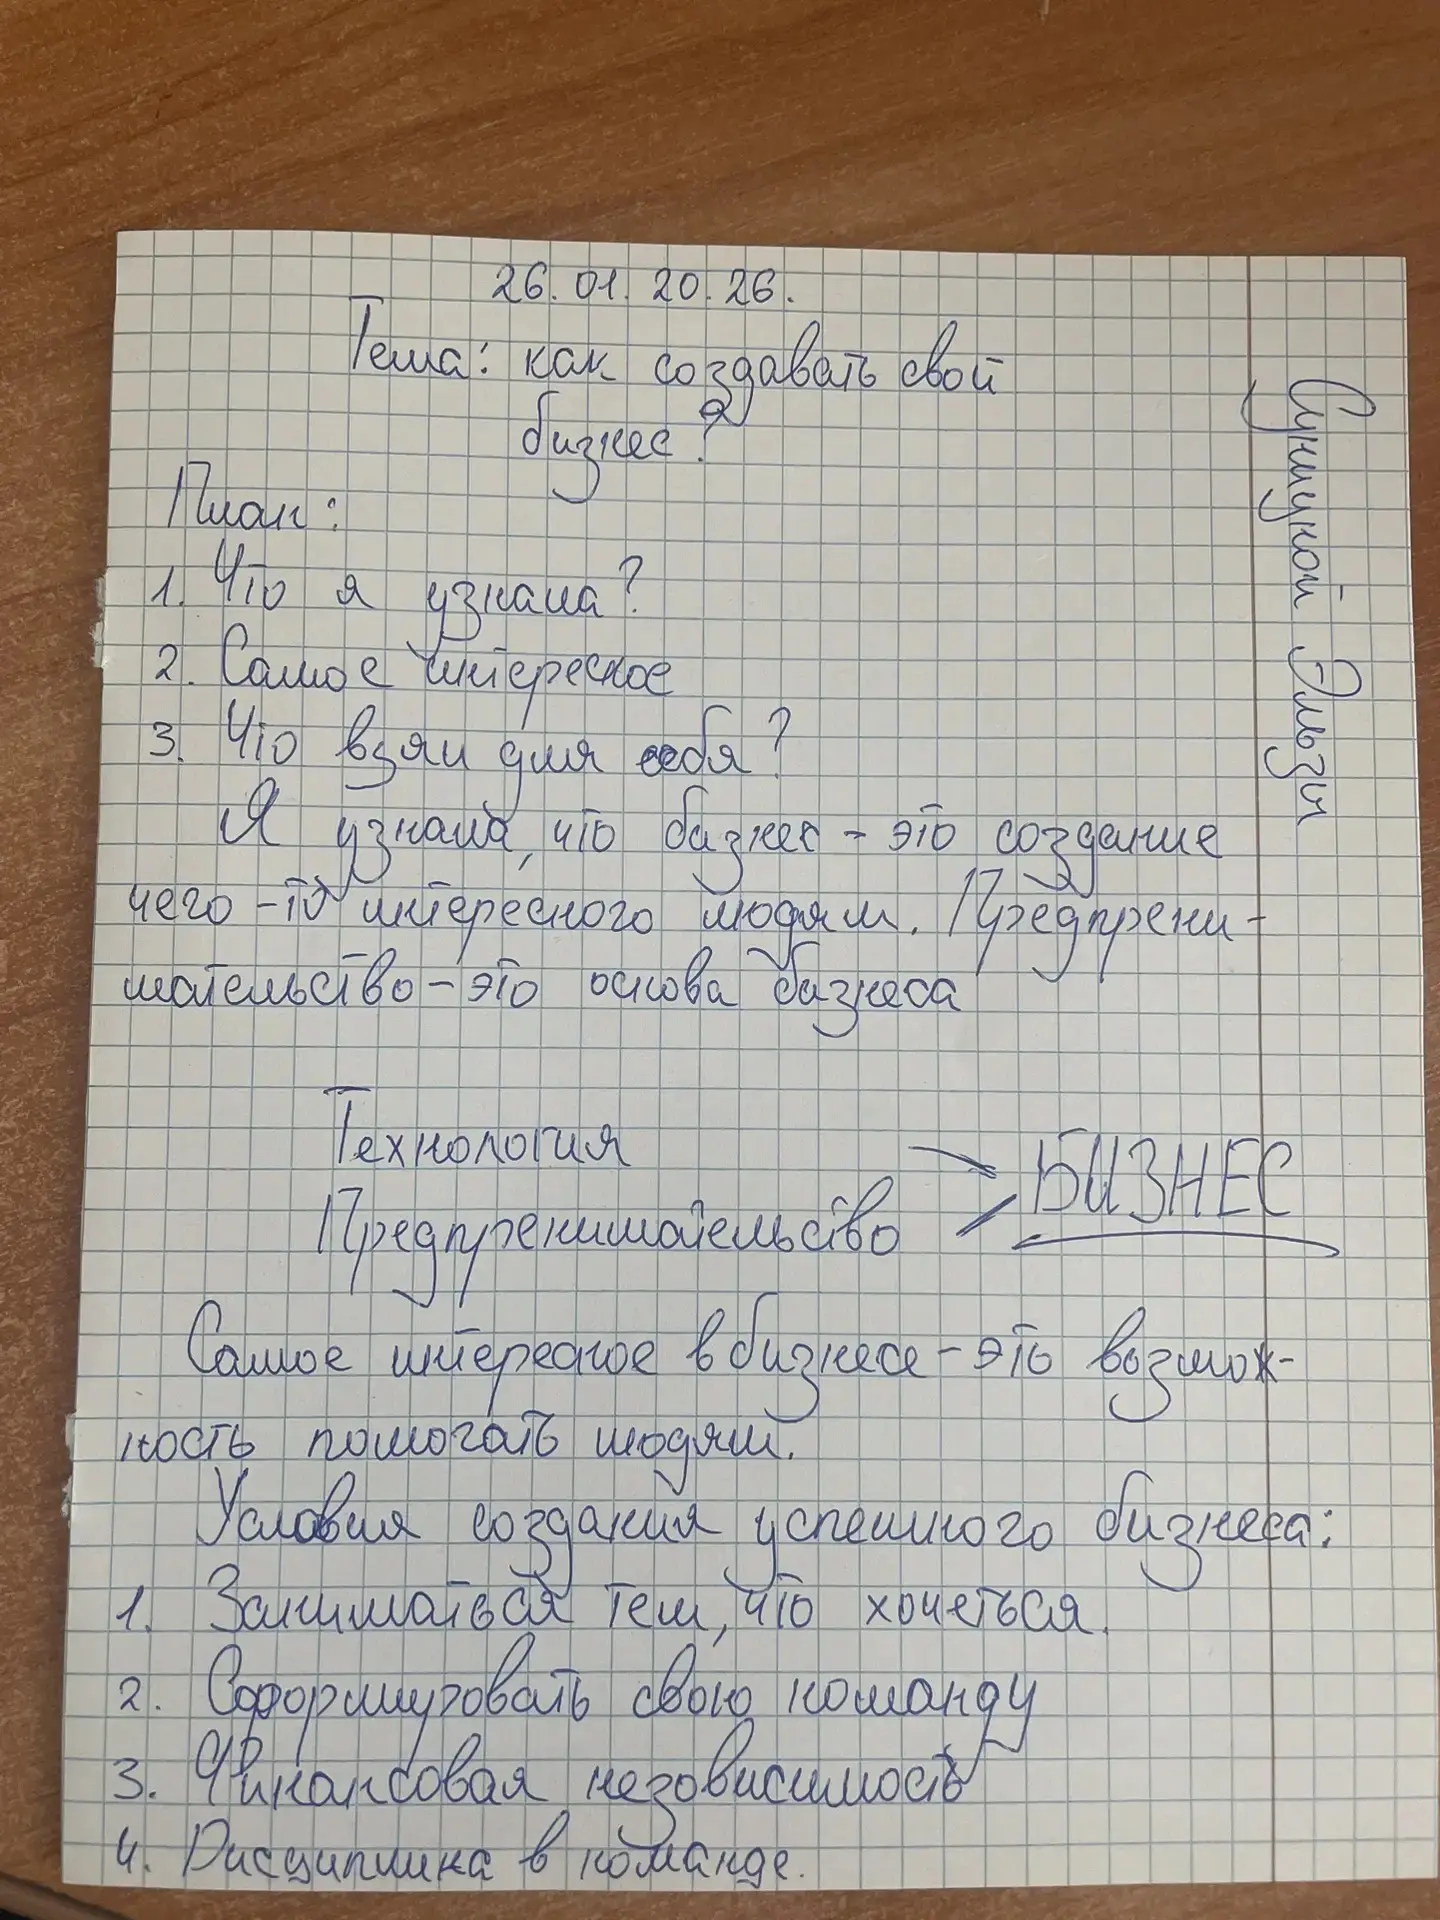 26.01.2026.
Тема: как создавать свой
бизнес?
План:
1. Что я узнала?
2. Самое интересное
3. Что взял для себя?
Я узнала, что бизнес - это создание
чего-то интересного людям. Предпрени-
мательство - это основа бизнеса
Технология
Предпренимательство
БИЗНЕС
Самое интересное в бизнесе - это возмож-
ность помогать людям.
Условия создания успешного бизнеса:
1. Заниматься тем, что хочеться.
2. Сформировать свою команду
3. Финансовая независимость
4. Дисциплина в команде.
Эльзы